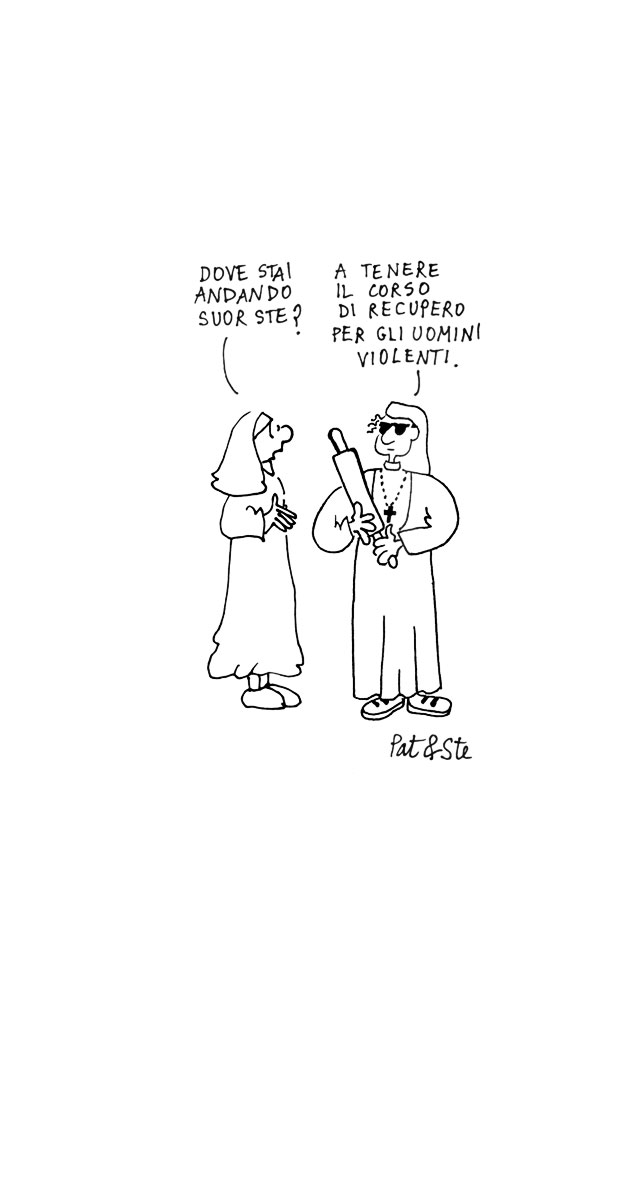 DOVE STAI
ANDANDO
SUOR STE?
A TENERE
IL CORSO
DI RECUPERO
PER GLI UOMINI
VIOLENTI.
Pat & Ste